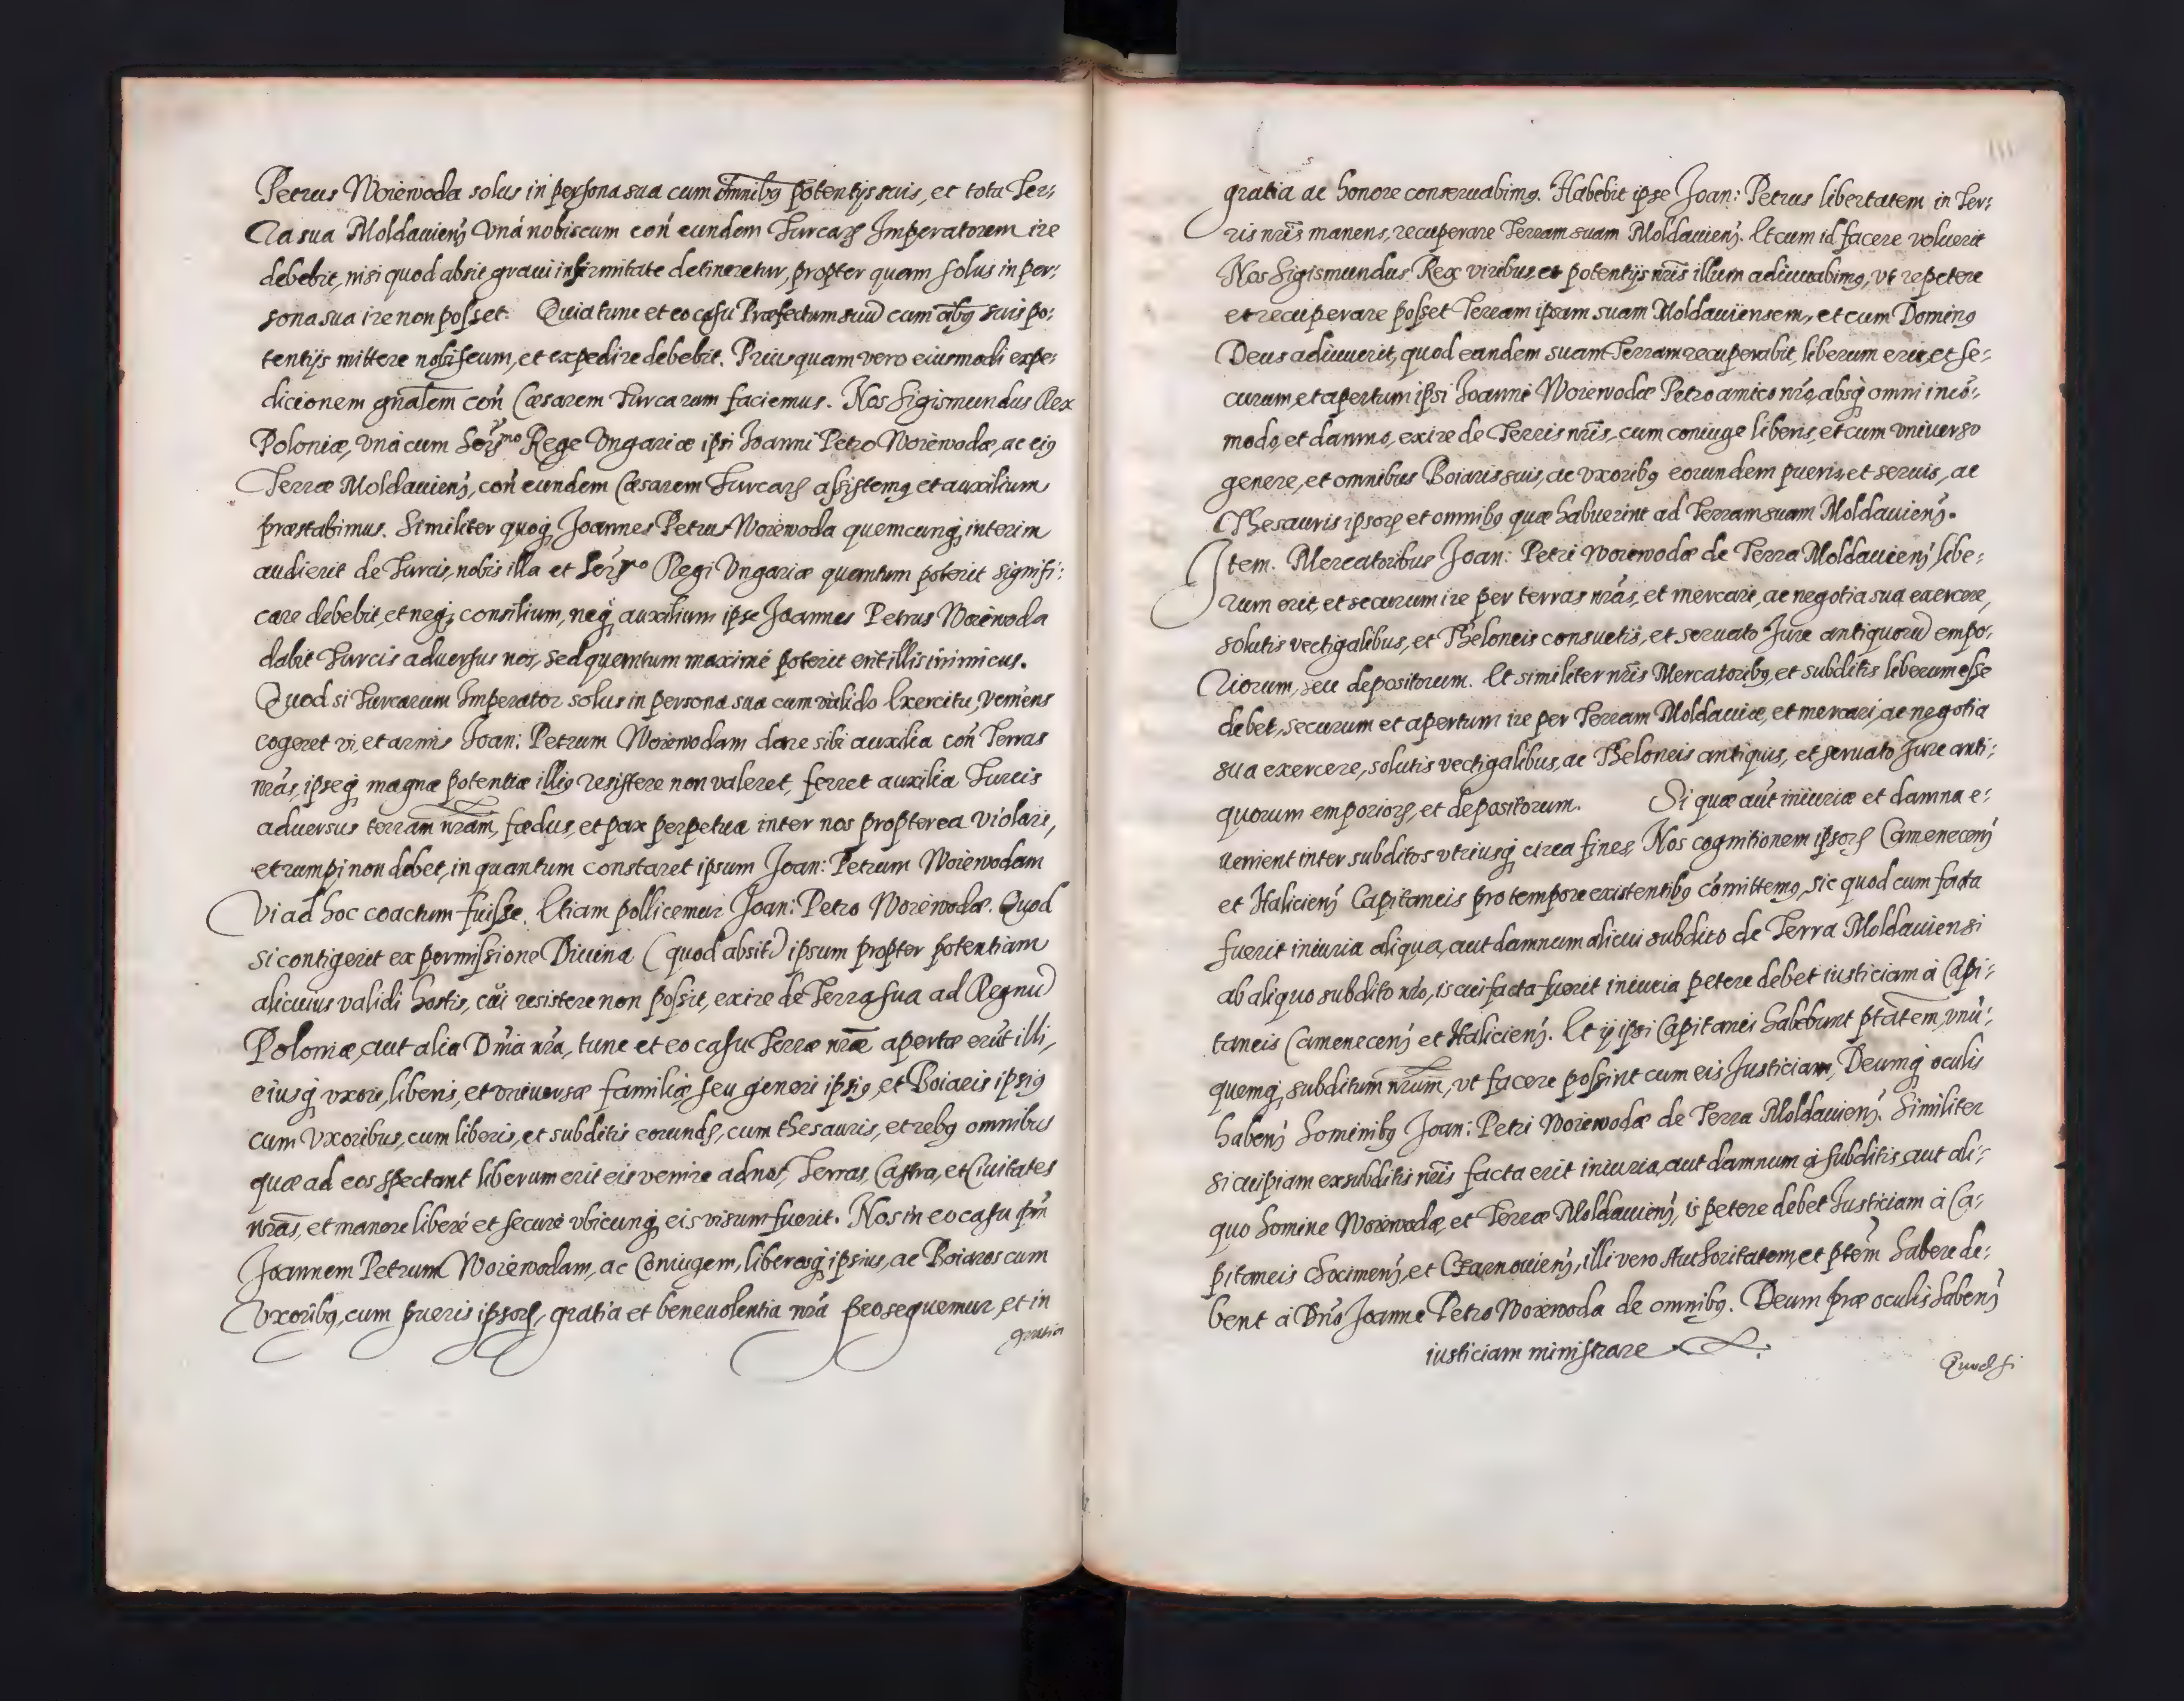 Petrus Woiewoda solus in persona sua cum omnibꝫ potentijs suis, et tota Ter:
ra sua Moldauien̄ vná nobiscum con̄ eundem Turcarꝝ Imperatorem ire
debebit, nisi quod absit graui infirmitate detineretur, propter quam solus in per:
sona sua ire non posset. Quia tunc et eo casu Præfectum suū cum oībꝫ suis po:
tentijs mittere nobiscum, et expedire debebit. Prius quam vero eiusmodi expe:
dicionem gn̄alem con̄ Cæsarem Turcarum faciemus. Nos Sigismundus Rex
Poloniæ, vná cum Serᵐᵒ Rege Vngariæ ipsi Joanni Petro Woiewodæ, ac eiꝰ
Terræ Moldauien̄, con̄ eundem Cæsarem Turcarꝝ assistemꝰ et auxilium
præstabimus. Similiter quoqꝫ Joannes Petrus Woiewoda quemcunqꝫ interim
audierit de Turcis, nobis illa et Serᵐᵒ Regi Vngariæ quantum poterit signifi:
care debebit, et neqꝫ consilium, neqꝫ auxilium ipse Joannes Petrus Woiewoda
dabit Turcis aduersus nos, sed quantum maximè poterit erit illis inimicus.
Quod si Turcarum Imperator solus in persona sua cum valido Exercitu, veniens
cogeret vi, et armis Joan: Petrum Woiewodam dare sibi auxilia con̄ Terras
nr̄as, ipseqꝫ magnæ potentiæ illiꝰ resistere non valeret, ferret auxilia Turcis
aduersus terram nr̄am, fædus, et pax perpetua inter nos propterea violari,
et rumpi non debet, in quantum constaret ipsum Joan: Petrum Woiewodam
Vi ad hoc coactum fuisse. Etiam pollicemur Joan: Petro Woiewodæ. Quod
si contigerit ex permissione Diuina (quod absit) ipsum propter potentiam
alicuius validi hostis, cui resistere non possit, exire de Terra sua ad Regnū
Poloniæ, aut alia Dn̄ia nr̄a, tunc et eo casu Terræ nr̄æ apertæ erūt illi,
eiusqꝫ vxori, liberis, et vniuersæ familiæ seu generi ipsiꝰ, et Boiaris ipsiꝰ
cum vxoribus, cum liberis, et subditis eorundꝫ, cum thesauris, et rebꝫ omnibus
quæ ad eos spectant liberum erit eis venire ad nos, Terras, Castra, et Ciuitates
nr̄as, et manere liberé et securé vbicunqꝫ eis visum fuerit. Nos in eo casu p̄m
Joannem Petrum Woiewodam, ac Coniugem, liberosqꝫ ipsius, ac Boiaros cum
Vxoribꝫ, cum pueris ipsorꝝ, gratia et beneuolentia nr̄a prosequemur, et in
gratia
gratia ac honore conseruabimꝰ. Habebit ipse Joan: Petrus libertatem in Ter:
ris nr̄is manens, recuperare Terram suam Moldauien̄. Et cum id facere voluerit
Nos Sigismundus Rex viribus et potentijs nr̄is illum adiuuabimꝰ, vt repetere
et recuperare posset Terram ipsam suam Moldauiensem, et cum Dominꝰ
Deus adiuuerit, quod eandem suam Terram recuperabit, liberum erit, et se:
curum, et apertum ipsi Joanni Woiewodæ Petro amico nr̄o, absqꝫ omni incō:
modo, et damno, exire de Terris nr̄is, cum coniuge liberis, et cum vniuerso
genere, et omnibus Boiaris suis, ac vxoribꝫ eorundem pueris, et seruis, ac
Thesauris ipsorꝝ et omnibꝫ quæ habuerint ad Terram suam Moldauien̄.
Item. Mercatoribus Joan: Petri Woiewodæ de Terra Moldauien̄ libe:
rum erit, et securum ire per terras nr̄as, et mercari, ac negotia sua exercere,
solutis vectigalibus, et Theloneis consuetis, et seruato Jure antiquorū empo:
riorum, seu depositorum. Et similiter nr̄is Mercatoribꝫ, et subditis liberum esse
debet, securum et apertum ire per Terram Moldauiæ, et mercari, ac negotia
sua exercere, solutis vectigalibus, ac Theloneis antiquis, et seruato Jure anti:
quorum emporiorꝝ, et depositorum. Si quæ aūt iniuriæ et damna e:
uenient inter subditos vtriusqꝫ circa fines, Nos cognitionem ipsorꝝ Camenecen̄
et Halicien̄ Capitaneis pro tempore existentibꝫ cōmittemꝰ, sic quod cum facta
fuerit iniuria aliqua, aut damnum alicui subdito de Terra Moldauiensi
ab aliquo subdito nr̄o, is cui facta fuerit iniuria petere debet iusticiam à Capi:
taneis Camenecen̄ et Halicien̄. Et ij ipsi Capitanei habebunt ptātem, vnū:
quemqꝫ subditum nr̄um, vt facere possint cum eis Justiciam, Deumqꝫ oculis
haben̄ hominibꝫ Joan: Petri Woiewodæ de Terra Moldauien̄. Similiter
si cuipiam ex subditis nr̄is facta erit iniuria, aut damnum à subditis, aut ali:
quo homine Woiewodæ, et Terræ Moldauien̄, is petere debet Justiciam à Ca:
pitaneis Chocimen̄, et Czarnouien̄, illi vero Authoritatem, et ptēm habere de:
bent à Dn̄o Joanne Petro Woiewoda de omnibꝫ. Deum præ oculis haben̄
iusticiam ministrare
Quod si